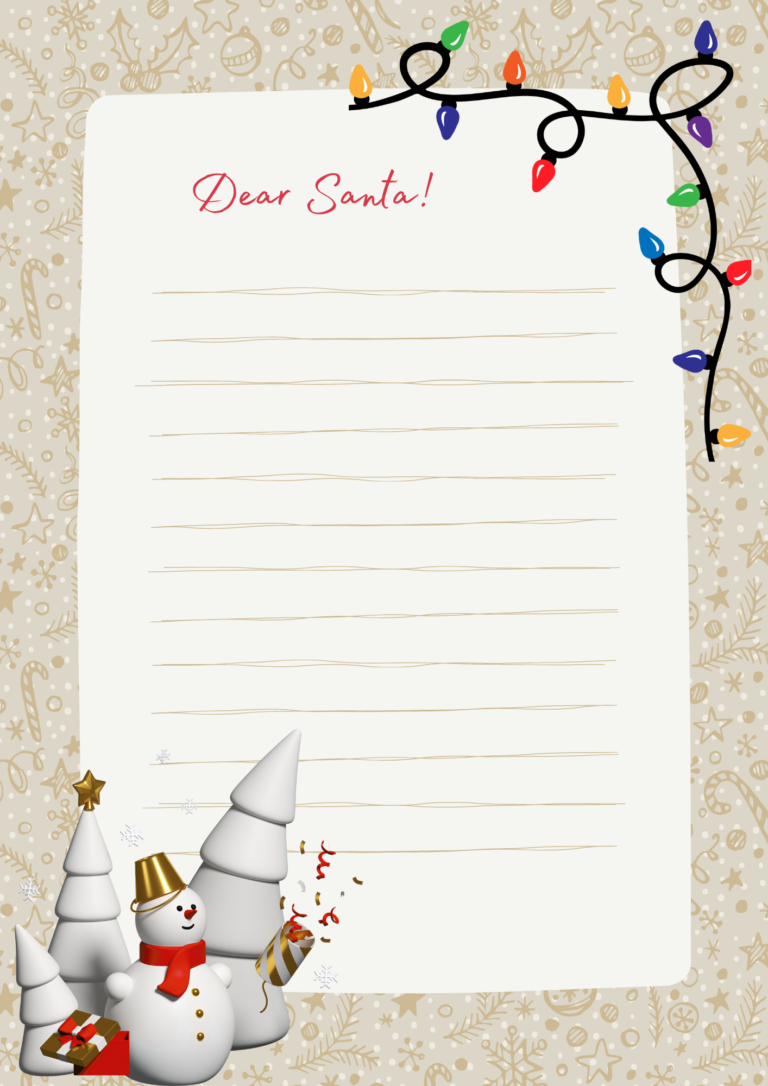 Dear Santa!